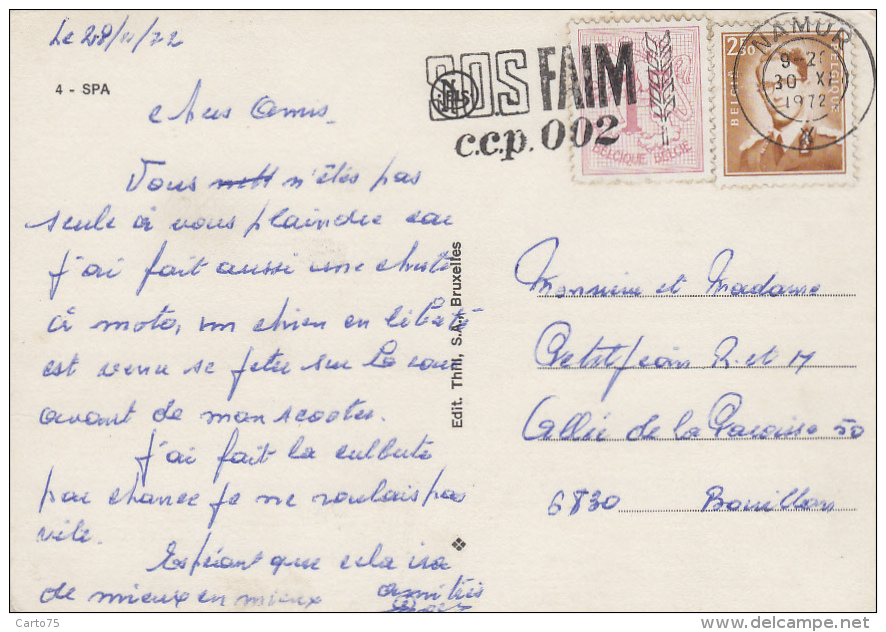 Le 28/11/72
4 - SPA
chers Amis.
Vous n'êtes pas
seule à vous plaindre car
j'ai fait aussi une chute
à moto, un chien en liberté
est venu se jeter sur la roue
avant de mon scooter.
J'ai fait la culbute
par chance je ne roulais pas
vite.
Espérant que cela ira
de mieux en mieux amitiés
Edit. Thill, S.A., Bruxelles
SOS FAIM
c.c.p. 002
1
BELGIQUE BELGIE
2,50
BELGIË BELGIQUE
NAMUR
30 XI
1972
X
Monsieur et Madame
Petitjean R. et M
Allée de la Paroisse 50
6830 Bouillon
Carto75